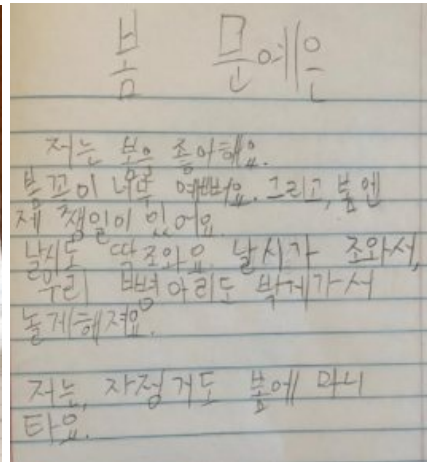 봄 문예은
저는 봄을 좋아해요.
봄꽃이 너무 예뻐요. 그리고, 봄엔
제 쨍일이 있어요.
날씨도 딱조와요. 날시가 조와서,
우리 뼝아리도 박게가서
놀게해져요.
저는, 자정거도 봄에 마니
타요.